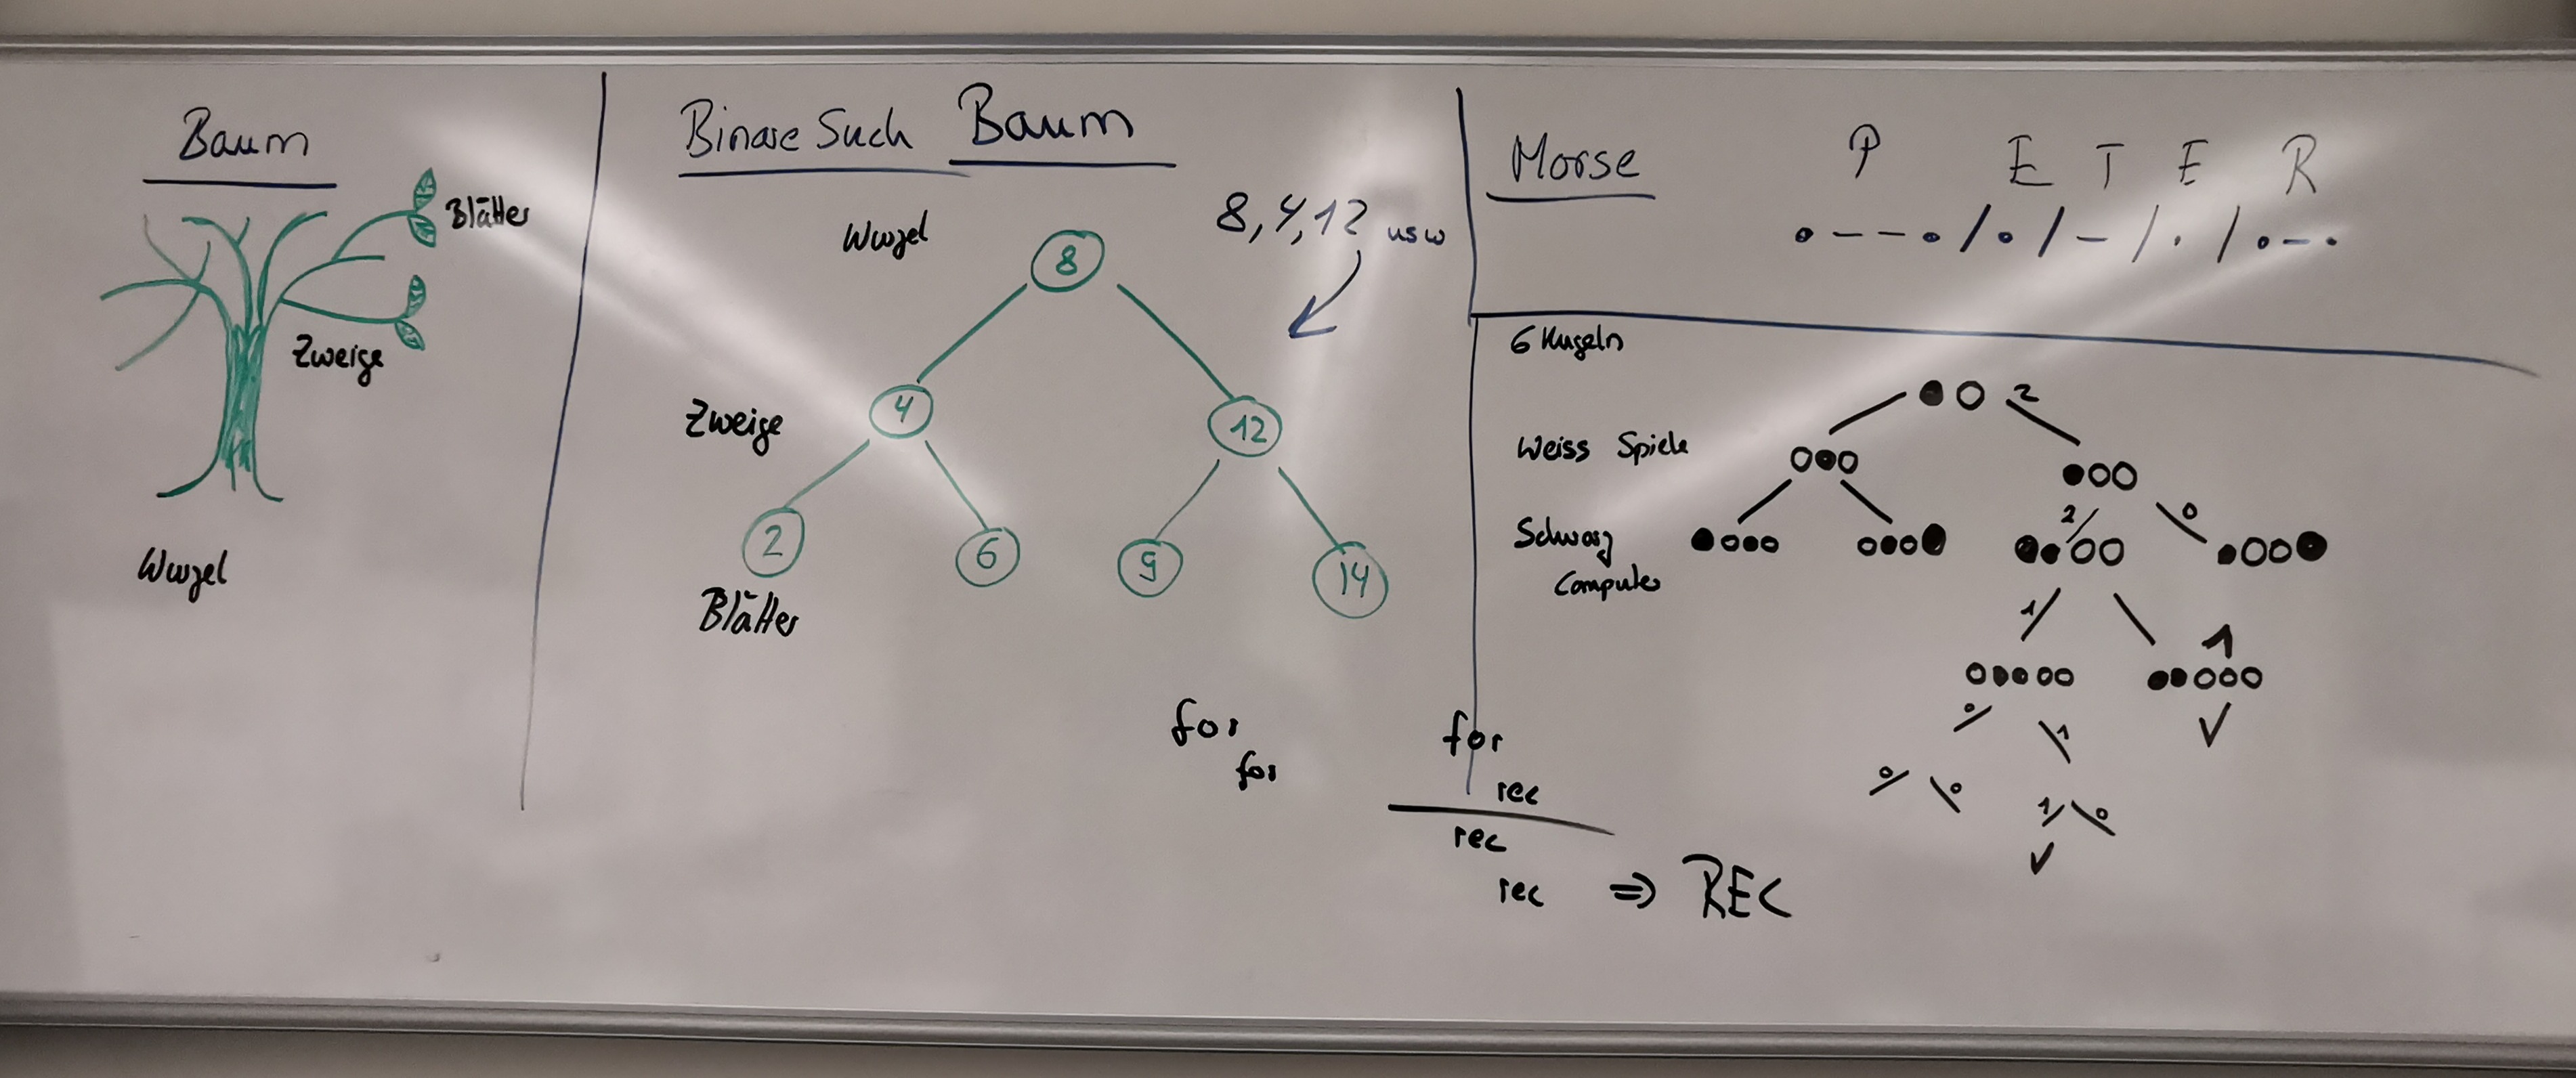 Baum
Blätter
Zweige
Wurzel
Binäre Such Baum
8, 4, 12 usw
Wurzel
8
Zweige
4
12
2
6
9
14
Blätter
for
for
for
rec
rec
rec => REC
Morse
P E T E R
• – – • / • / – / • / • – •
6 Kugeln
2
Weiss Spiele
2
0
Schwarz
Computer
1
1
0
1
0
0
1
0